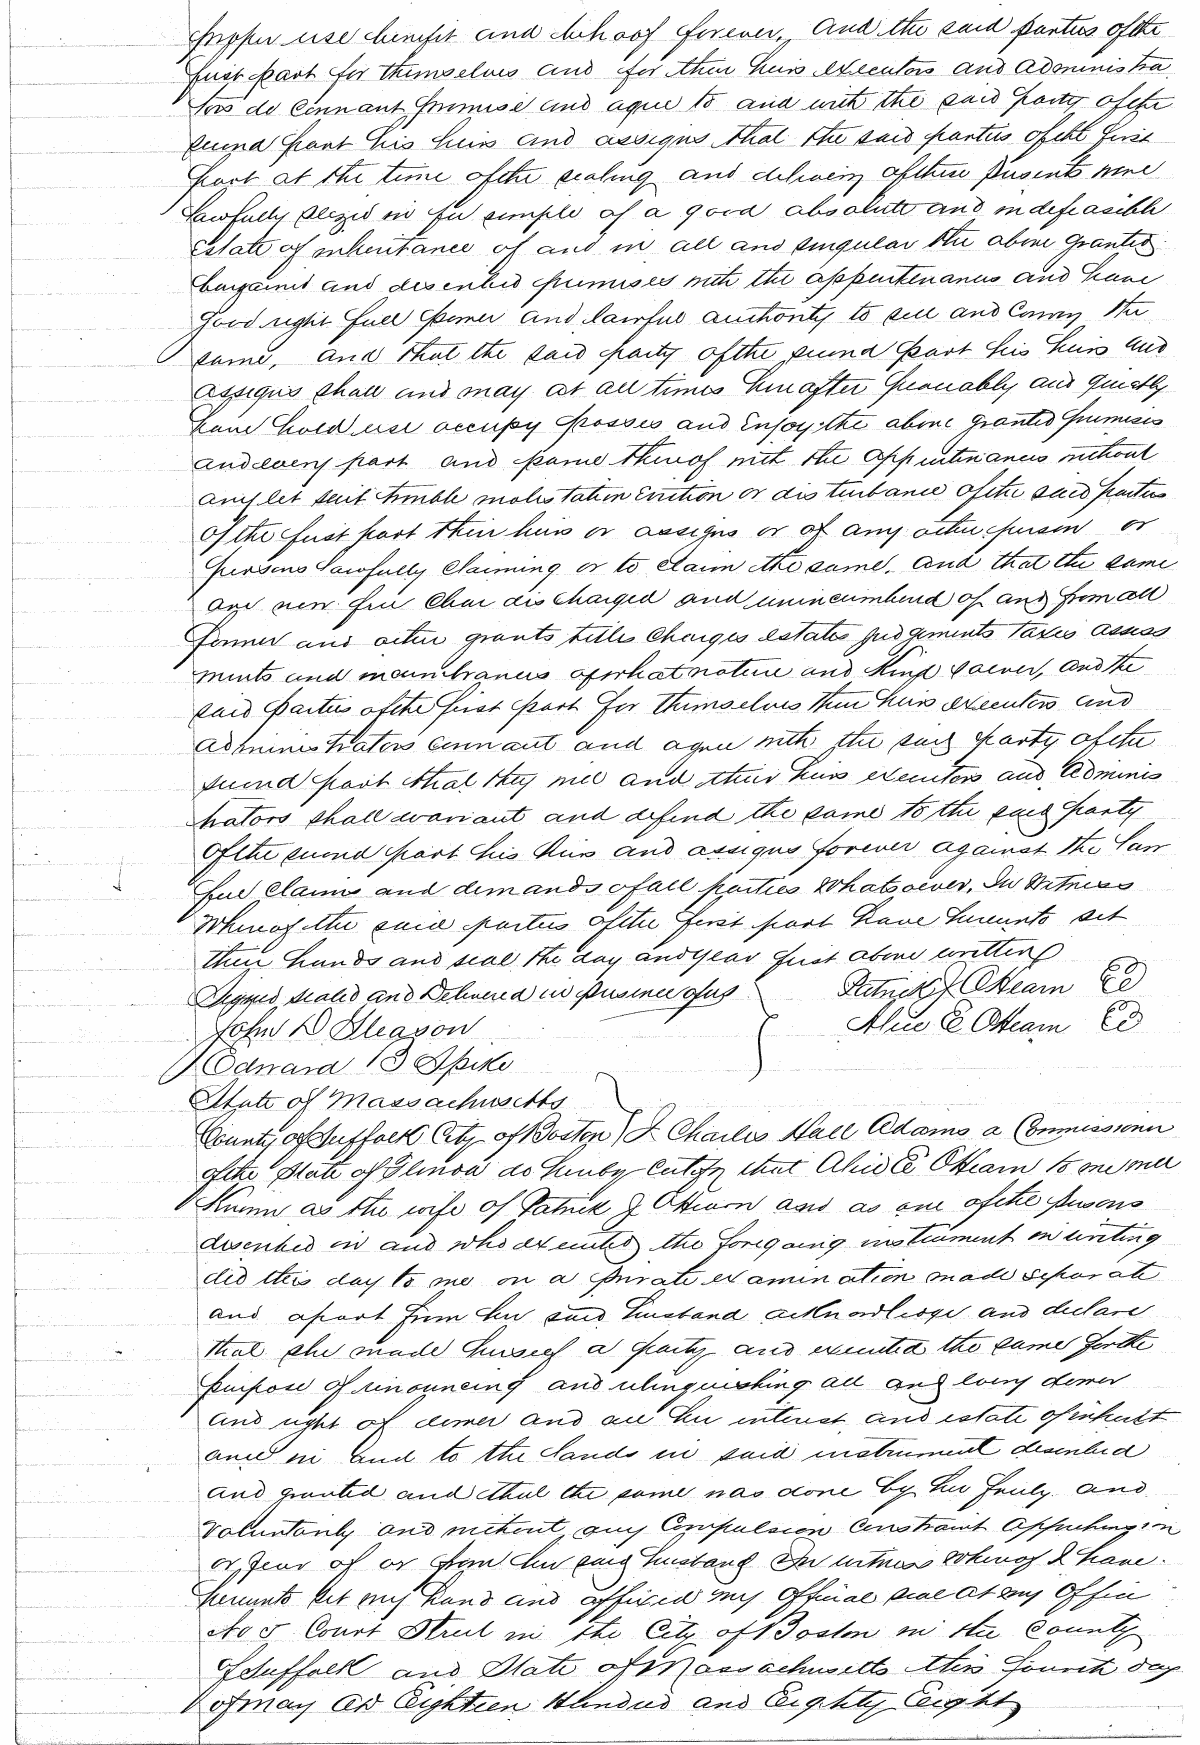 proper use benefit and behoof forever, And the said parties of the
first part for themselves and for their heirs executors and administra
tors do covenant promise and agree to and with the said party of the
second part his heirs and assigns that the said parties of the first
part at the time of the sealing and delivery of these presents were
lawfully seized in fee simple of a good absolute and indefeasible
Estate of inheritance of and in all and singular the above granted
bargained and described premises with the appurtenances and have
good right full power and lawful authority to sell and Convey the
same, and that the said party of the second part his heirs and
assigns shall and may at all times hereafter peaceably and quietly
have hold use occupy possess and Enjoy the above granted premises
and every part and parcel thereof with the appurtenances without
any let suit trouble molestation Eviction or disturbance of the said parties
of the first part their heirs or assigns or of any other person or
persons lawfully claiming or to claim the same, and that the same
are now free Clear discharged and unincumbered of and from all
former and other grants titles charges estates judgements taxes assess
ments and incumbrances of what nature and Kind soever, and the
said parties of the first part for themselves their heirs executors and
administrators covenant and agree with the said party of the
second part that they will and their heirs executors and Adminis
trators shall warrant and defend the same to the said party
of the second part his heirs and assigns forever against the law
ful Claims and demands of all parties Whatsoever. In Witness
Whereof the said parties of the first part have hereunto set
their hands and seal the day and year first above written
Signed sealed and Delivered in presence of us Patrick J OHearn
John D Gleason Alice E OHearn
Edward B Spike
State of Massachusetts
County of Suffolk City of Boston } I Charles Hall Adams a Commissioner
of the State of Illinois do hereby Certify that Alice E OHearn to me well
Known as the wife of Patrick J OHearn and as one of the persons
described in and who executed the foregoing instrument in writing
did this day to me on a private examination made separate
and apart from her said husband acknowledge and declare
that she made herself a party and executed the same for the
purpose of renouncing and relinquishing all and every dower
and right of dower and all her interest and estate of inherit
ance in and to the lands in said instrument described
and granted and that the same was done by her freely and
voluntarily and without any Compulsion Constraint Apprehension
or fear of or from her said husband In witness whereof I have
hereunto set my hand and affixed my Official seal at my Office
No 5 Court Street in the City of Boston in the County
of Suffolk and State of Massachusetts this fourth day
of May AD Eighteen Hundred and Eighty Eight